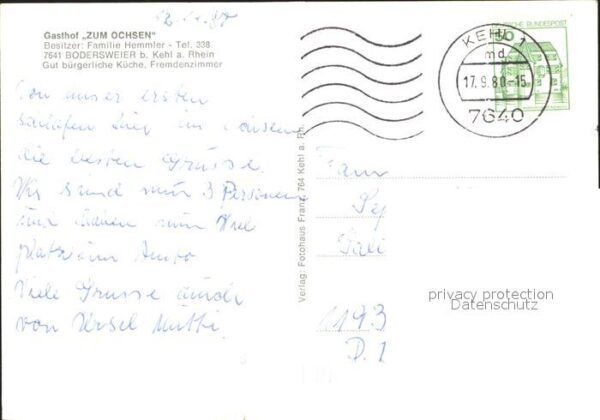 Gasthof „ZUM OCHSEN"
Besitzer: Familie Hemmler - Tel. 338
7641 BODERSWEIER b. Kehl a. Rhein
Gut bürgerliche Küche. Fremdenzimmer
Von unser ersten
schlafen hier im Ochsen
die besten Grüsse.
Wir sind nur 3 Personen
und haben nun viel
platz im Auto
Viele Grüsse auch
von Ursel Mutti
Verlag: Fotohaus Franz, 764 Kehl a. Rh.
DEUTSCHE BUNDESPOST
KEHL 1
md
17.9.80-15
7640
Frau
privacy protection
Datenschutz
6193